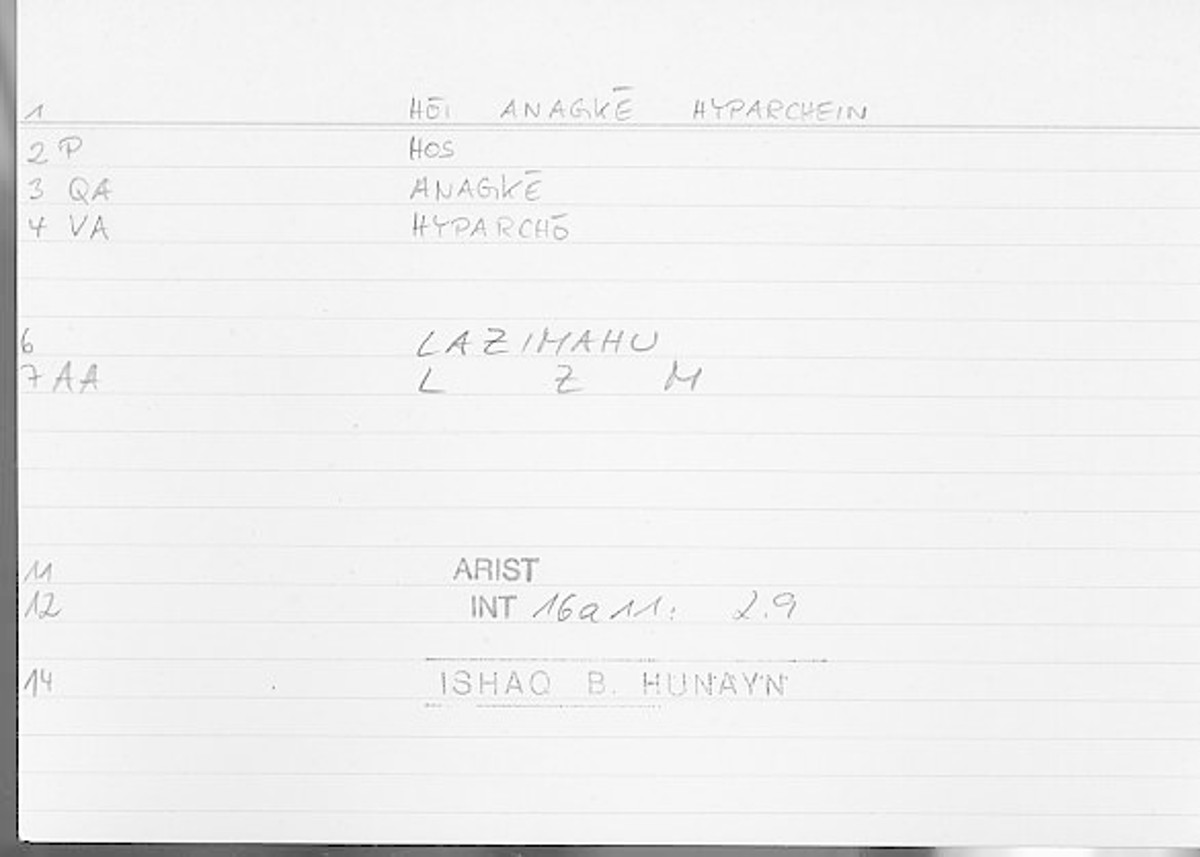 1 HŌI ANAGKĒ HYPARCHEIN
2 P HOS
3 QA ANAGKĒ
4 VA HYPARCHŌ
6 LAZIMAHU
7 AA L Z M
11 ARIST
12 INT 16a11: 2.9
14 ISHAQ B. HUNAYN